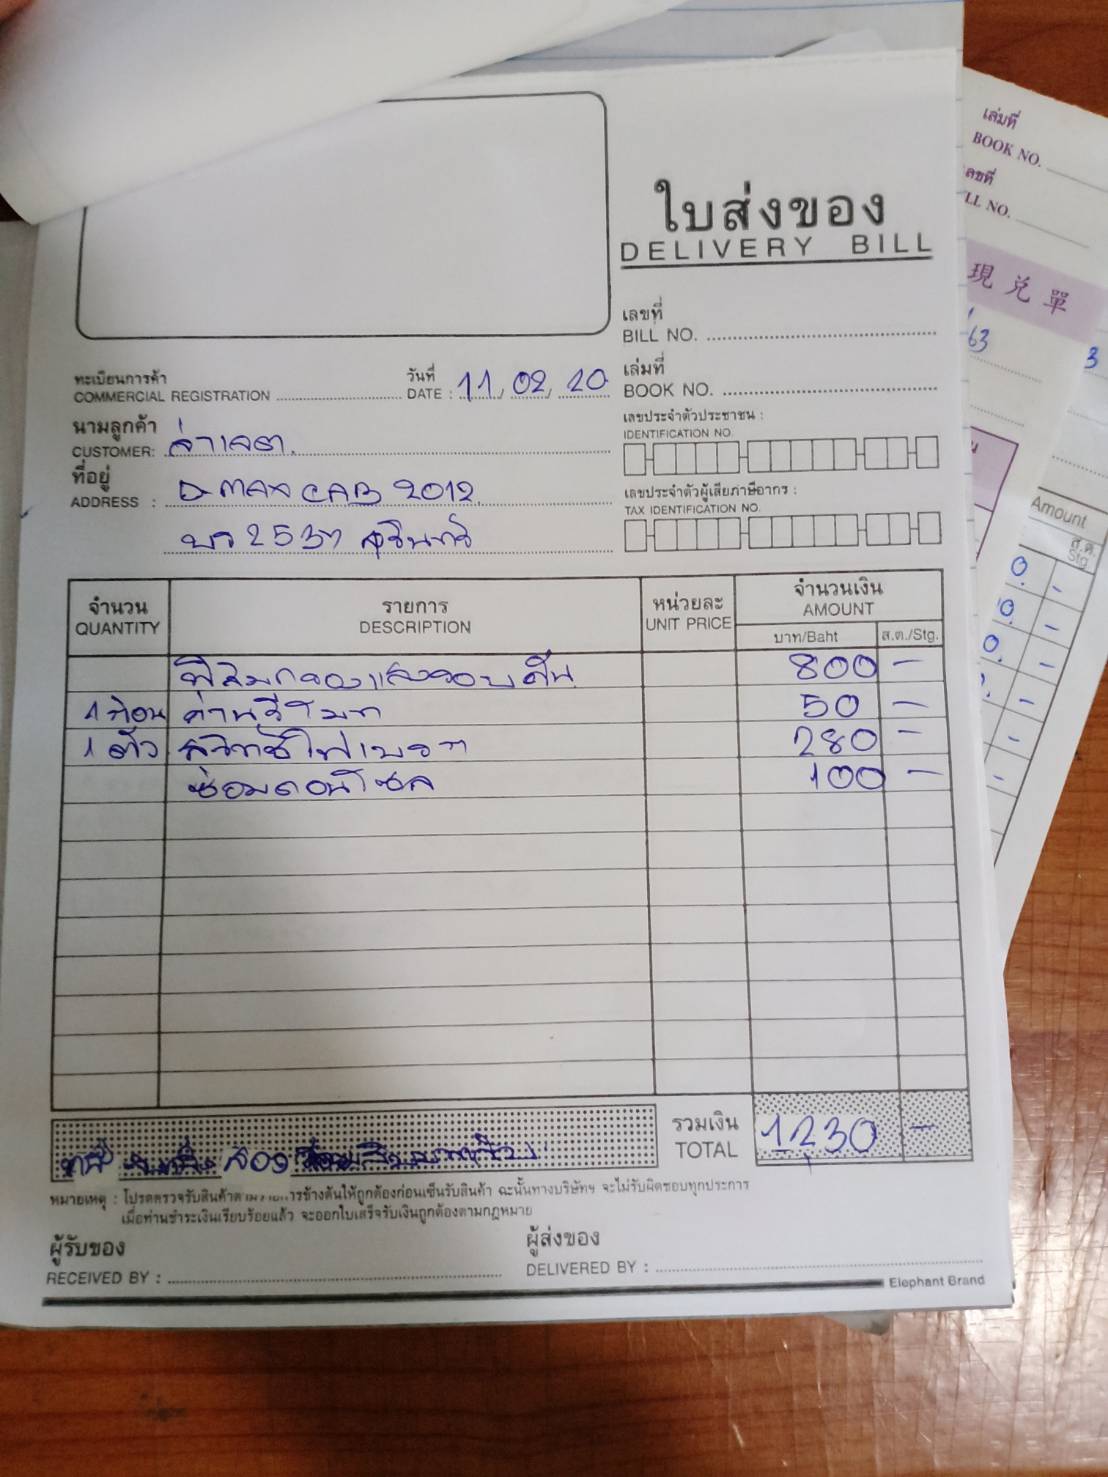 ใบส่งของ
DELIVERY BILL
เลขที่
BILL NO.
ทะเบียนการค้า
COMMERCIAL REGISTRATION
วันที่
DATE : 11 / 02 / 20
เล่มที่
BOOK NO.
นามลูกค้า
CUSTOMER:
ที่อยู่
ADDRESS : D-MAX CAB 2012
บว 2537 สุรินทร์
เลขประจำตัวประชาชน :
IDENTIFICATION NO.
เลขประจำตัวผู้เสียภาษีอากร :
TAX IDENTIFICATION NO.
จำนวน รายการ หน่วยละ จำนวนเงิน
QUANTITY DESCRIPTION UNIT PRICE AMOUNT
บาท/Baht ส.ต./Stg.
ฟิล์มกรองแสงรอบคัน 800 -
1 ก้อน ถ่านรีโมท 50 -
1 ตัว สวิทช์ไฟเบรค 280 -
ซ่อมคอนโซล 100 -
รวมเงิน
TOTAL 1,230 -
หมายเหตุ : โปรดตรวจรับสินค้าตามรายการข้างต้นให้ถูกต้องก่อนเซ็นรับสินค้า ฉะนั้นทางบริษัทฯ จะไม่รับผิดชอบทุกประการ
เมื่อท่านชำระเงินเรียบร้อยแล้ว จะออกใบเสร็จรับเงินถูกต้องตามกฎหมาย
ผู้รับของ
RECEIVED BY :
ผู้ส่งของ
DELIVERED BY :
Elephant Brand
เล่มที่
BOOK NO.
เลขที่
LL NO.
現兌單
63
3
Amount
ส.ต.
Stg